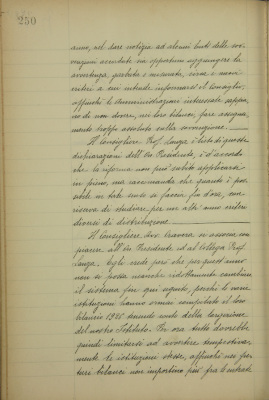 250
anno, nel dare notizia ad alcuni Enti delle ero-
gazioni accordate sia opportuno aggiungere la
avvertenza, garbata e misurata, circa i nuovi
criteri a cui intende informarsi il Consiglio,
affinchè le Amministrazioni interessate sappia-
no di non dovere, nei loro bilanci, fare assegna-
mento troppo assoluto sulla sovvenzione.
Il Consigliere Prof. Lanza è lieto di queste
dichiarazioni dell'On. Presidente; è d'accordo
che la riforma non può subito applicarsi
in pieno, ma raccomanda che quanto è pos-
sibile in tale senso si faccia fin d'ora, con
riserva di studiare, per un altro anno, criteri
diversi di distribuzione.
Il Consigliere Avv. si associa con
piacere all'On. Presidente ed al collega Prof.
Lanza. Egli crede però che per quest'anno
non si possa neanche ridottamente cambiare
il sistema fin qui seguito, perchè le varie
istituzioni hanno ormai compilato il loro
bilancio 1926 tenendo conto della elargizione
del nostro Istituto. Per ora tutto dovrebbe
quindi limitarsi ad avvertire tempestiva-
mente le istituzioni stesse, affinchè nei fu-
turi bilanci non importino più fra l'entrate